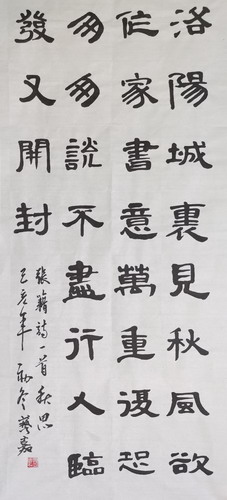 洛陽城裏見秋風欲
作家書意萬重復恐
匆匆說不盡行人臨
發又開封
張籍詩一首秋思
己亥年冬藝嘉